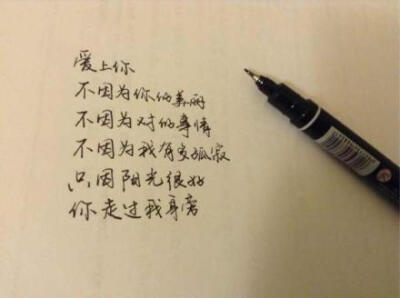 爱上你
不因为你的美丽
不因为对的事情
不因为我有多孤寂
只因阳光很好
你走过我身旁